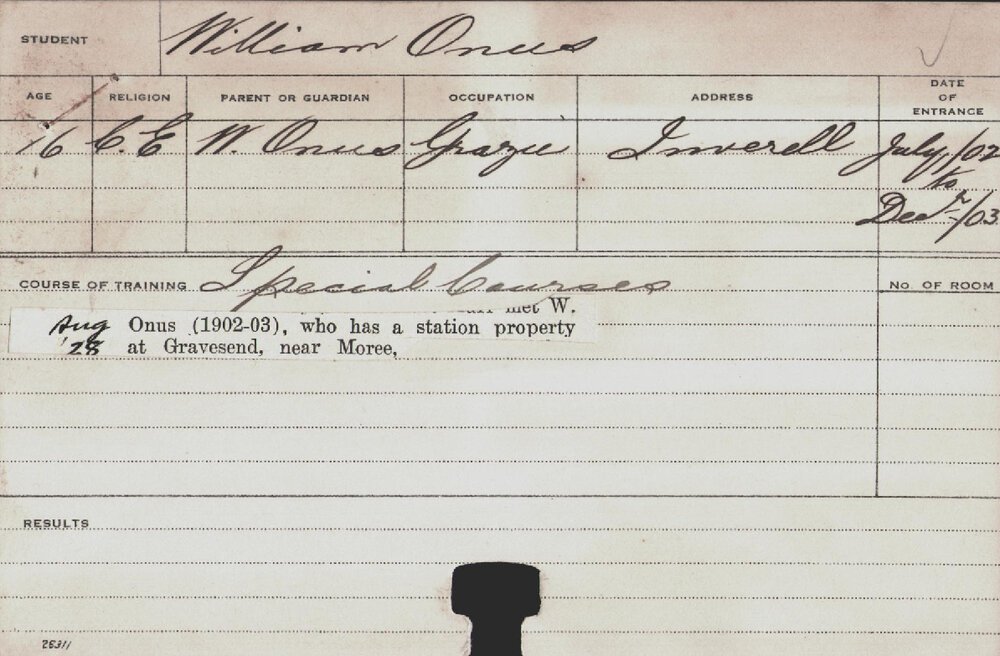 STUDENT William Onus
AGE RELIGION PARENT OR GUARDIAN OCCUPATION ADDRESS DATE OF ENTRANCE
16 C.E W. Onus Grazier Inverell July/02
to
Decr/03
COURSE OF TRAINING Special Courses No. OF ROOM
met W.
Aug Onus (1902-03), who has a station property
'28 at Gravesend, near Moree,
RESULTS
26311